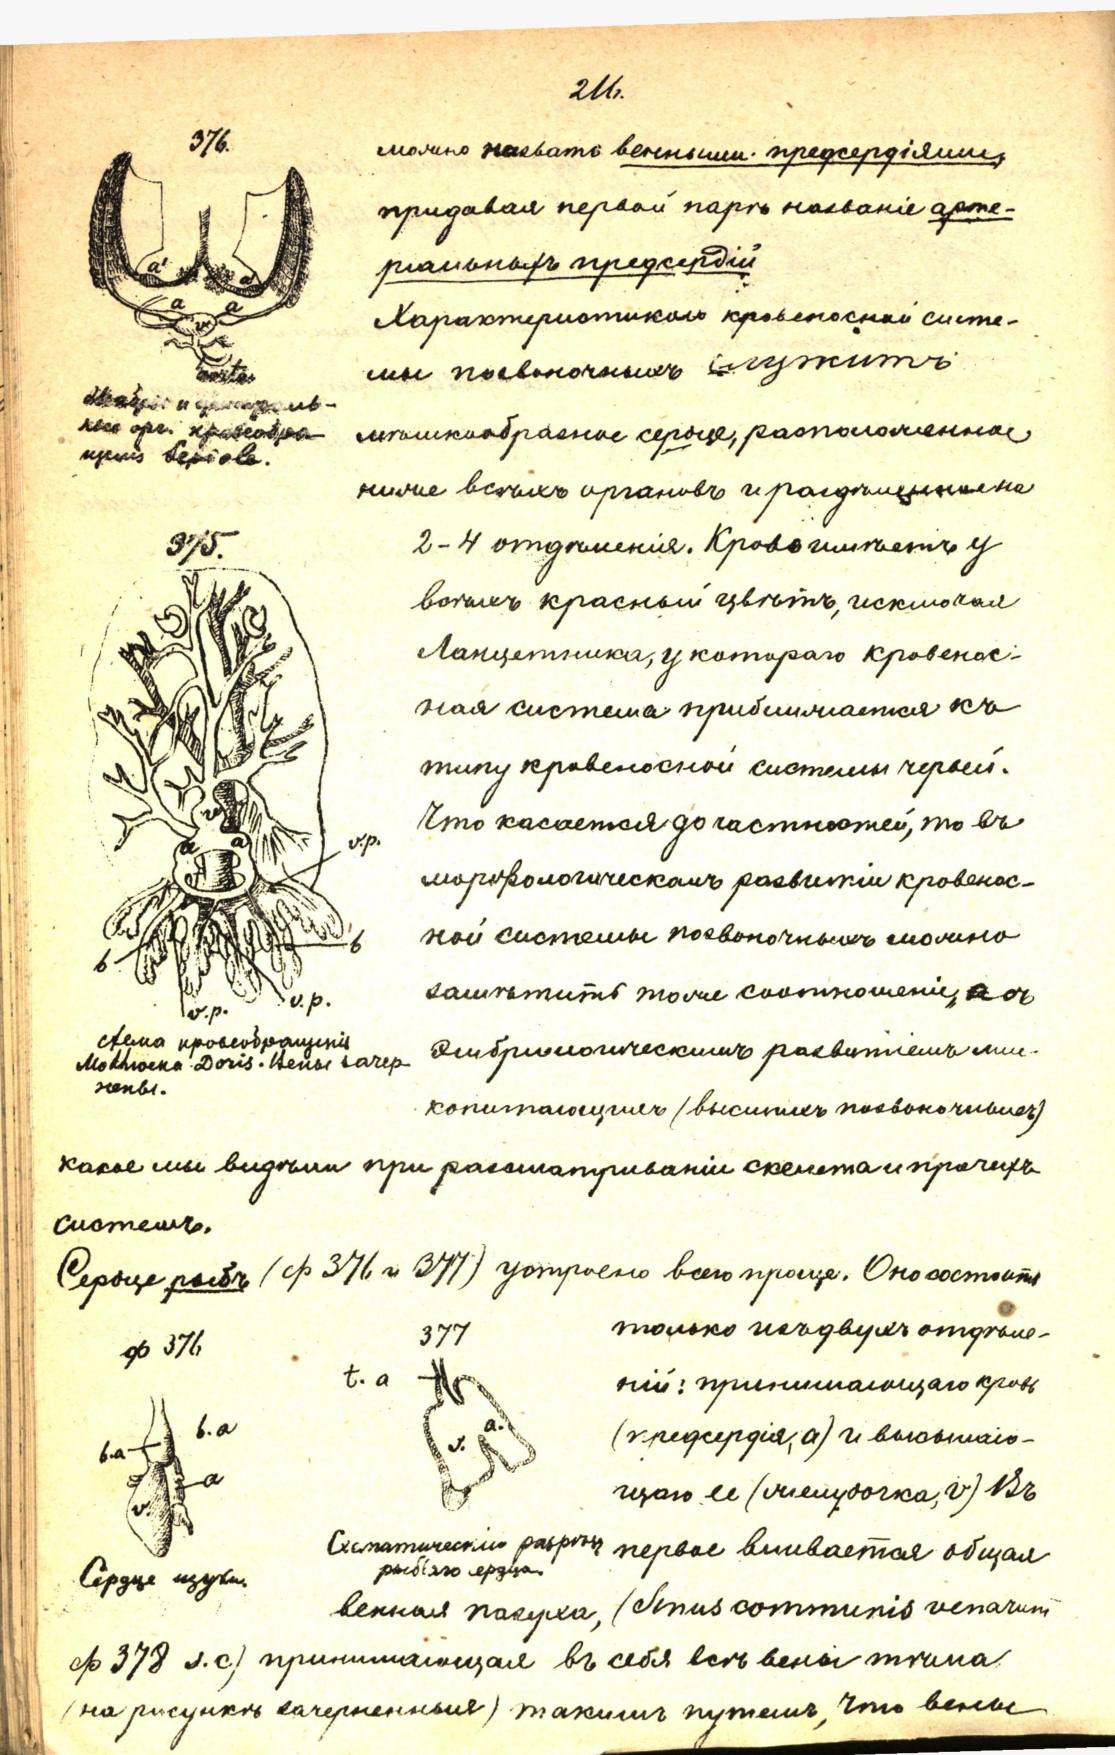 211.
376.
можно назвать венными предсердіями,
придавая первой парѣ названіе арте-
ріальныхъ предсердій
Характеристикою кровеносной систе-
мы позвоночныхъ служитъ
мѣшкообразное сердце, расположенное
ниже всѣхъ органовъ и раздѣленное на
2-4 отдѣленія. Кровь имѣетъ у
всѣхъ красный цвѣтъ, исключая
Ланцетника, у котораго кровенос-
ная система приближается къ
типу кровеносной системы червей.
Что касается до частностей, то въ
морфологическомъ развитіи кровенос-
ной системы позвоночныхъ можно
замѣтить тоже соотношеніе, съ
эмбріологическимъ развитіемъ мле-
копитающихъ (высшихъ позвоночныхъ)
какое мы видѣли при разсматриваніи скелета и прочихъ
системъ.
a' a'
a a
v
aorta
и
ные орг. кровеобра
щенія
375.
v
a a
v.p.
b b
v.p. v.p.
схема кровеобращенія
Моллюска Doris. Вены зачер
нены.
Сердце рыбъ (ф 376 и 377) устроено всего проще. Оно состоитъ
только изъ двухъ отдѣле-
ній: принимающаго кровь
(предсердія, a) и высылаю-
щаго ее (желудочка, v) Въ
первое вливается общая
ф 376
b.a b.a
a
v.
Сердце щуки.
377
t. a
a.
v.
Схематическій разрѣзъ
рыбьяго сердца.
венная пазуха, (Sinus communis venarum
ф 378 s.c) принимающая въ себя всѣ вены тѣла
(на рисункѣ зачерненныя) такимъ путемъ, что вены